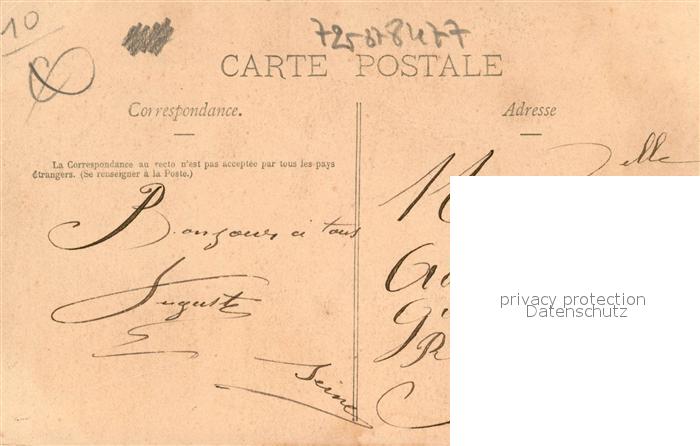 10
72508477
CARTE POSTALE
Correspondance.
Adresse
La Correspondance au recto n'est pas acceptée par tous les pays
étrangers. (Se renseigner à la Poste.)
elle
Bonjour à tous
Auguste
Seine
privacy protection
Datenschutz